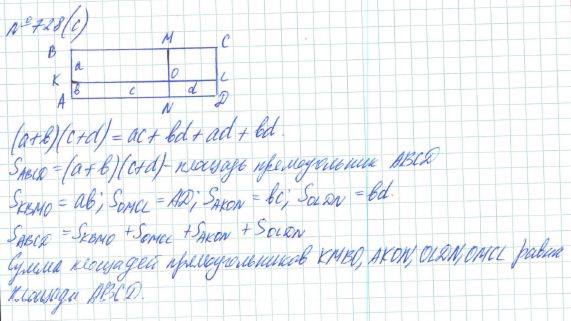 №728(с)
B M C
a
K O L
b c d
A N D
(a+b)(c+d)=ac+bd+ad+bd.
S_ABCD=(a+b)(c+d)-площадь прямоугольник ABCD
S_KBMO=ab; S_OMCL=AD; S_AKON=bc; S_OLDN=bd.
S_ABCD=S_KBMO+S_OMCL+S_AKON+S_OLDN
Сумма площадей прямоугольников KMBO, AKON, OLDN, OMCL равна
площади ABCD.